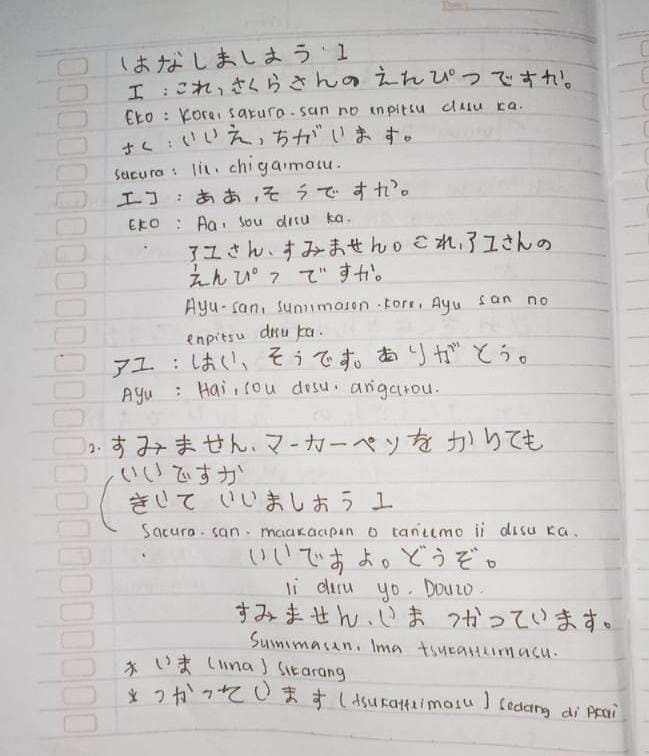 はなしましょう 1
エ : これ、さくらさんの えんぴつですか。
Eko : Kore, sakura-san no enpitsu desu ka.
さく : いいえ、ちがいます。
Sakura : Iie, chigaimasu.
エコ : ああ、そうですか。
EKO : Aa, sou desu ka.
アユさん、すみません。これ、アユさんの
えんぴつですか。
Ayu-san, sumimasen. Kore, Ayu san no
enpitsu desu ka.
アユ : はい、そうです。ありがとう。
Ayu : Hai, sou desu. arigatou.
2. すみません、マーカーペンを かりても
いいですか
きいて いいましょう 1
Sakura-san. maakaapen o karitemo ii desu ka.
いいですよ。どうぞ。
Ii desu yo. Douzo.
すみません、いま つかっています。
Sumimasen, Ima tsukatteimasu.
* いま (ima) sekarang
* つかっています (tsukatteimasu) sedang di pakai